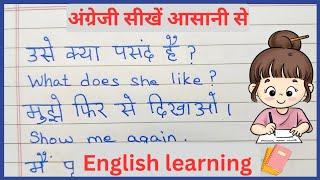 अंग्रेजी सीखें आसानी से
उसे क्या पसंद है ?
What does she like ?
मुझे फिर से दिखाओ ।
Show me again.
मैं
English learning